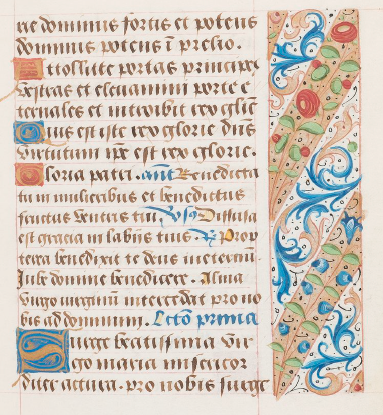 rie dominus fortis et potens
dominus potens ī prelio.
Attollite portas principes
vestras et elevamini porte e
ternales et introibit rex glīe
Quis est iste rex glorie dn̄s
virtutum ip̄e est rex glorie.
Gloria patri. ant̄ Benedicta
tu in mulieribus et benedictus
fructus ventris tui p̄s Diffusa
est gracia in labiis tuis. R̄ prop
terea benedixit te deus in eternū.
Jube domne benedicere. Alma
virgo virginū intercedat pro no
bis ad dominum. Lectō prima
Surge beatissima vir
go maria misericor
diter actura. pro nobis surge